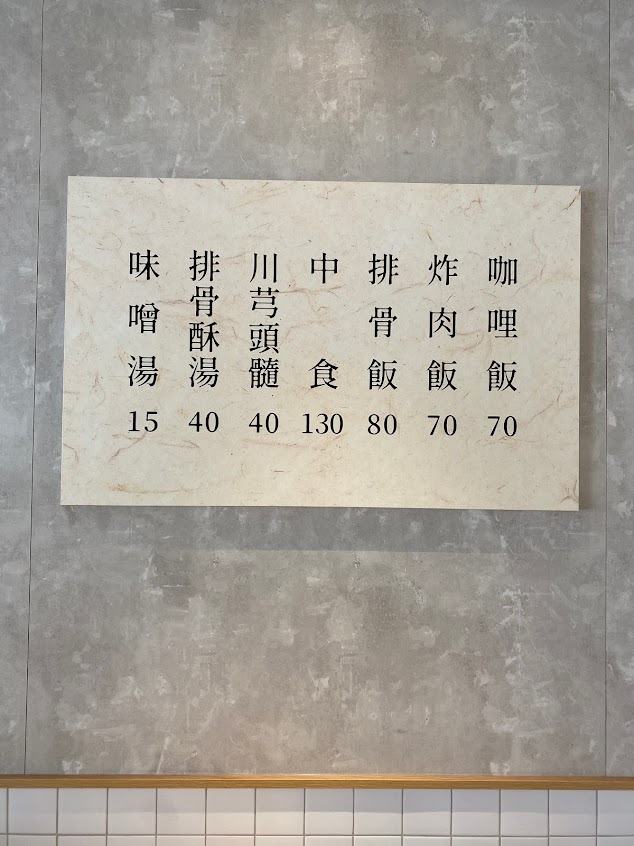 咖哩飯 70
炸肉飯 70
排骨飯 80
中食 130
川芎頭髓 40
排骨酥湯 40
味噌湯 15